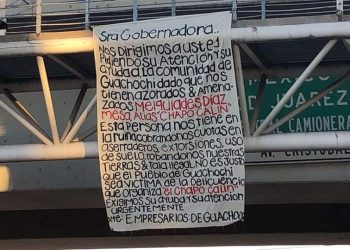 Sra Gobernadora...
Nos Dirigimos a usted
Pidiendo su Atención Y su
Ayuda a la comunidad de
Guachochi dado que nos
tienen azorados & Amena-
zados Melquiades Diaz
Mesa Alias "CHAPO CALIN"
Esta Persona nos tiene en
la ruina cobrandonos cuotas en
aserraderos, extorsiones, uso
de suelo, robandonos nuestras
Tierras & tala ilegal. No es justo
que el Pueblo de Guachochi
sea VICTIMA de la Delicuencia
que organiza el Chapo Calin
EXIGIMOS su ayuda y su atencion
URGENTEMENTE
EMPRESARIOS DE GUACHOC
JUAREZ
CAMIONERA
AV.